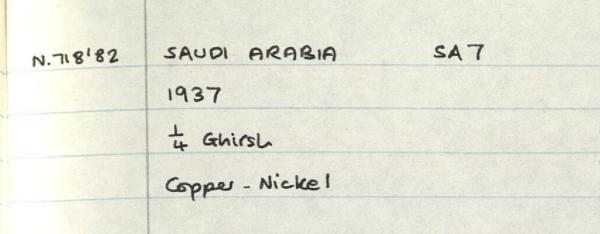 N.718'82 SAUDI ARABIA SA7
1937
1/4 Ghirsh
Copper - Nickel